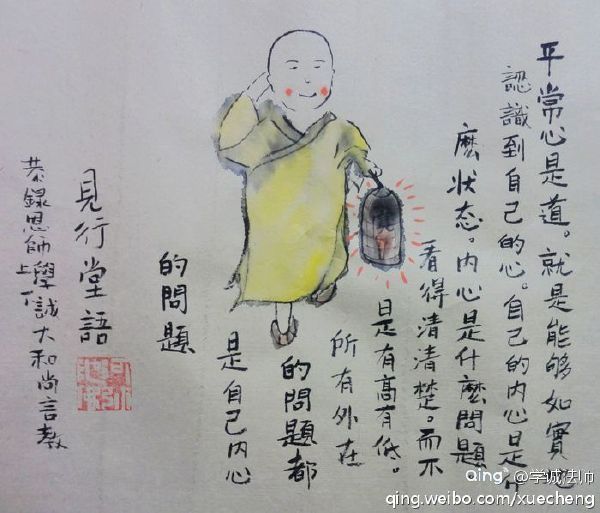 平常心是道。就是能够如實地
認識到自己的心。自己的内心是什
麼状态。内心是什麼問題
看得清清楚。而不
是有高有低。
所有外在
的問題都
是自己内心
的問題
見行堂語
恭錄恩師上學下誠大和尚言教
qing @学诚法师
qing.weibo.com/xuecheng